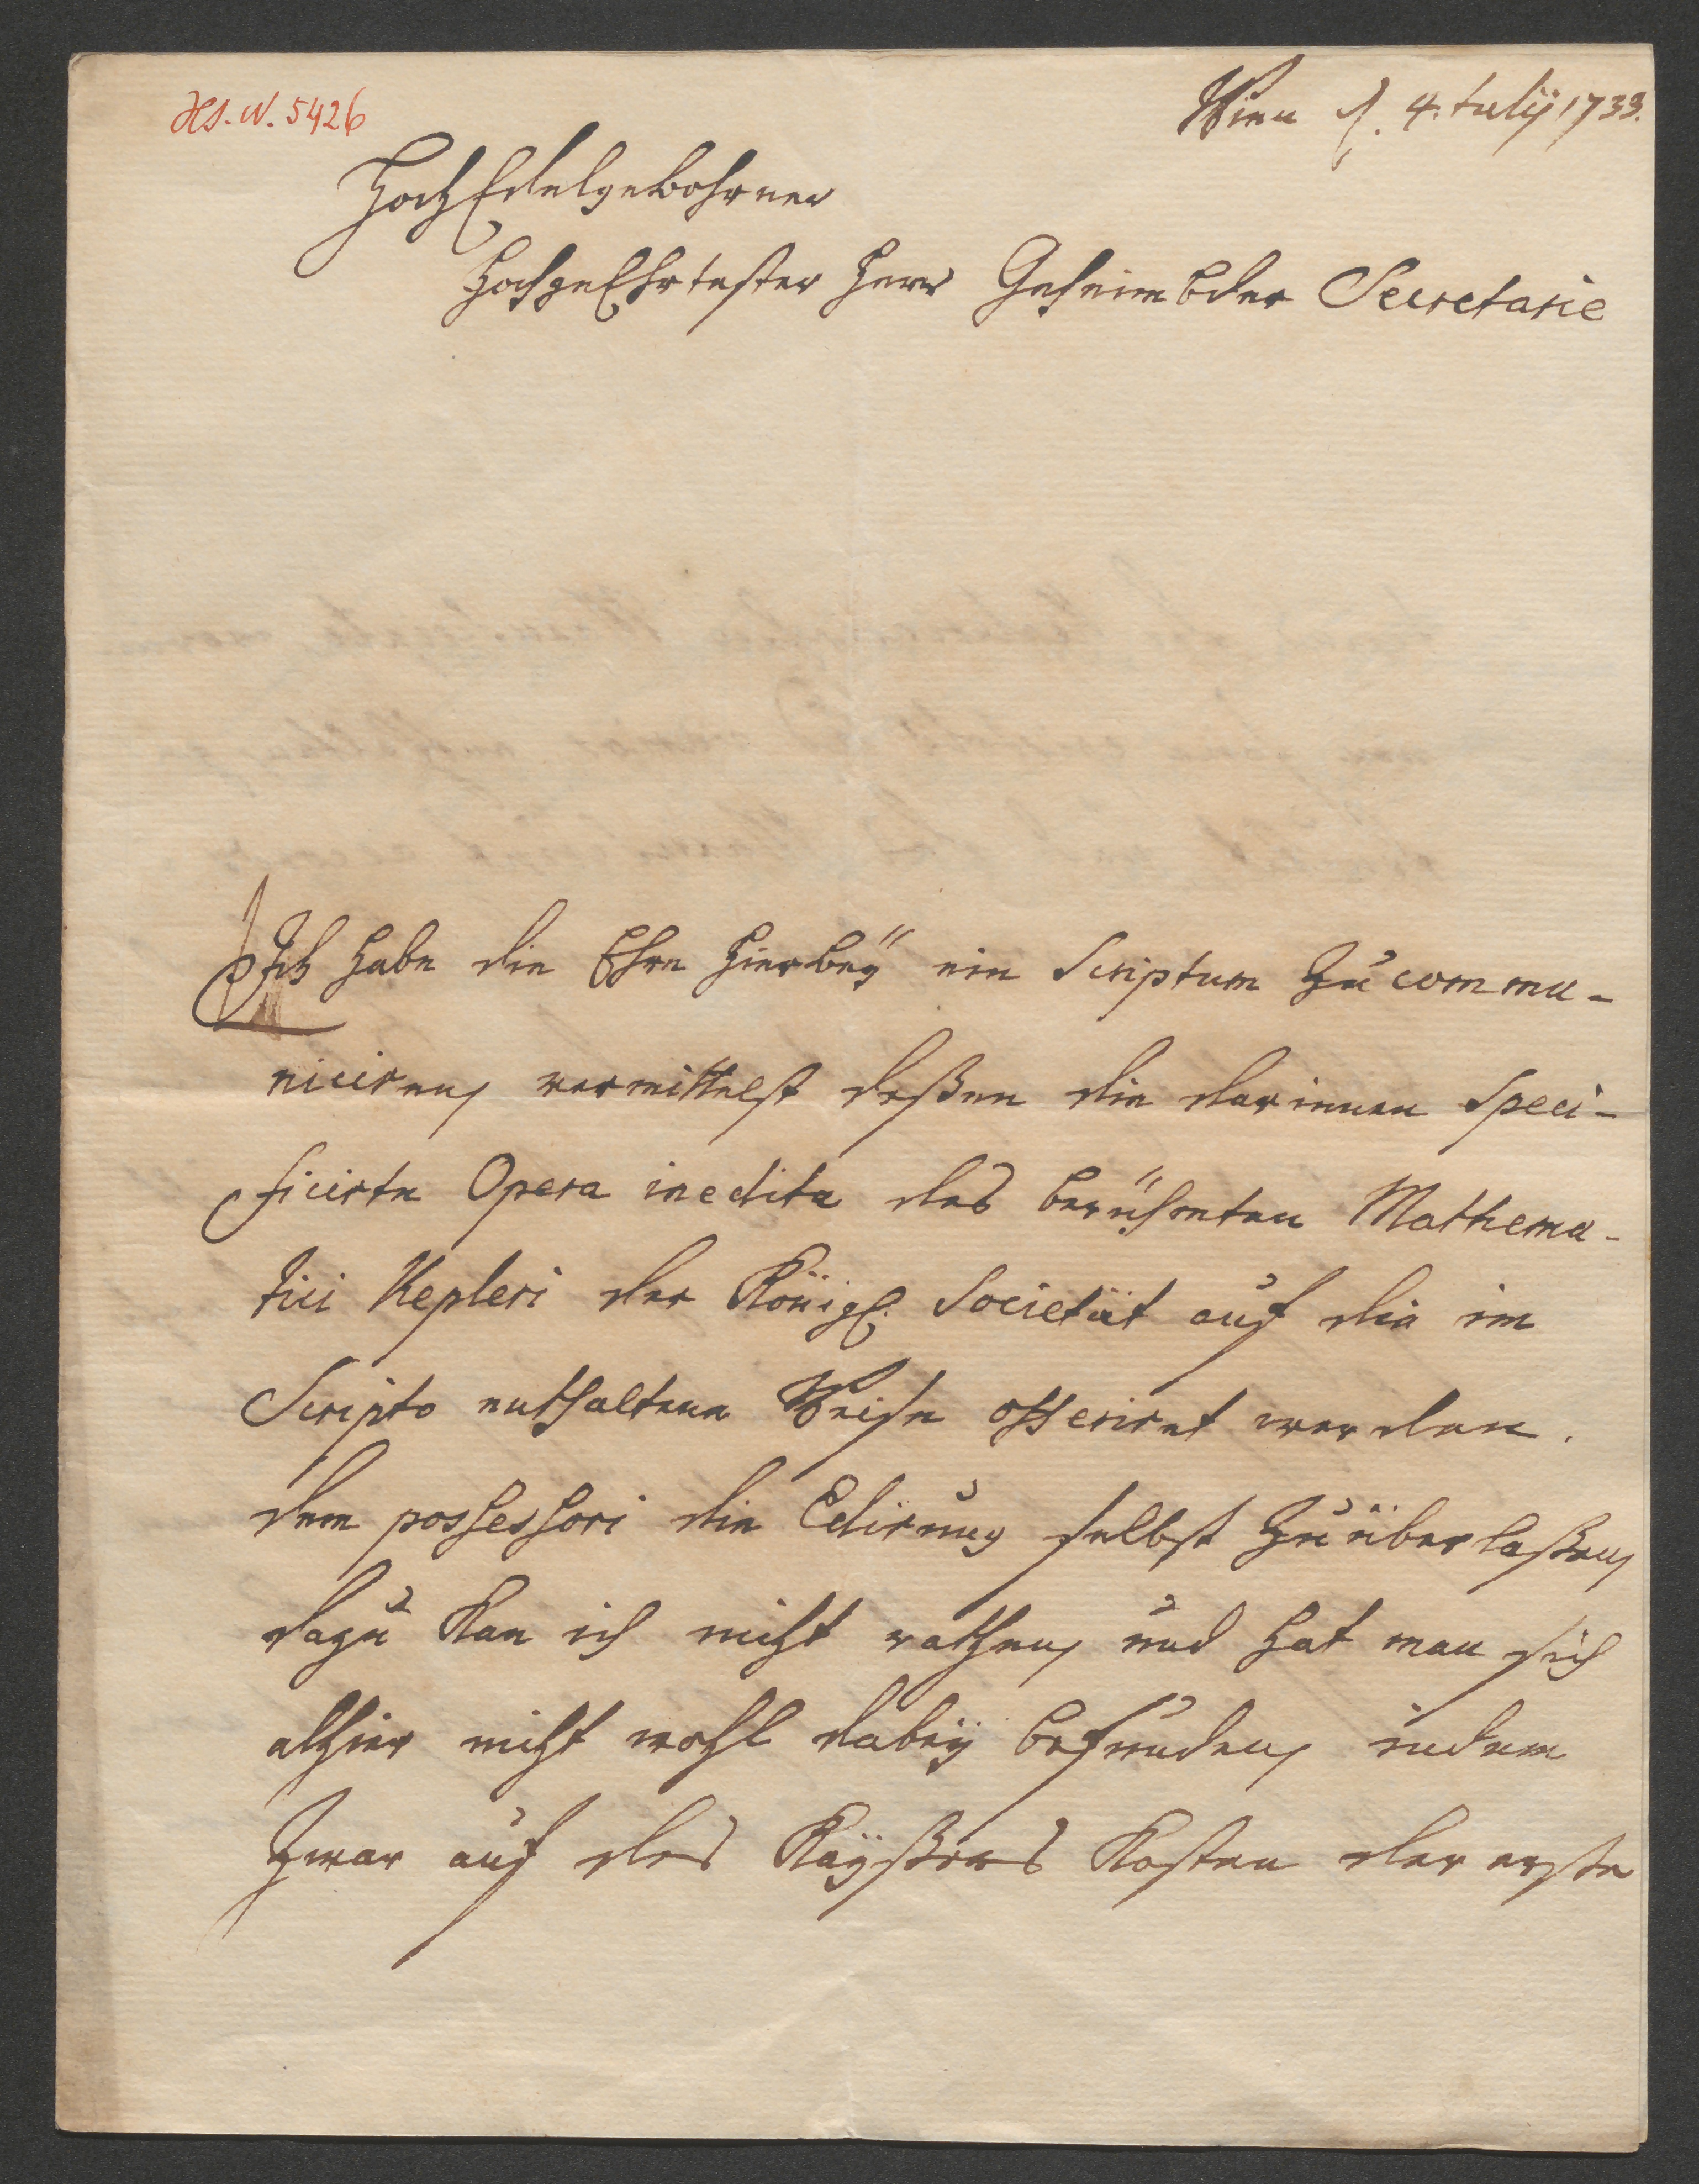 Hs. N. 5426
Wien d. 4. July 1733.
HochEdelgebohrner
HochgeEhrtester Herr Geheimbder Secretarie
Ich habe die Ehre hierbeÿ ein Scriptum zu commu-
niciren, vermittelst deßen die darinnen speci-
ficirte Opera inedita des berühmten Mathema-
tici Kepleri der Königl. Societät auf die im
Scripto enthaltene Weise offeriret werden.
dem possessori die Edirung selbst zu überlaßen,
dazu kan ich nicht rathen, und hat man sich
alhier nicht wohl dabeÿ befunden, indem
zwar auf des Kaÿßers Kosten der erste